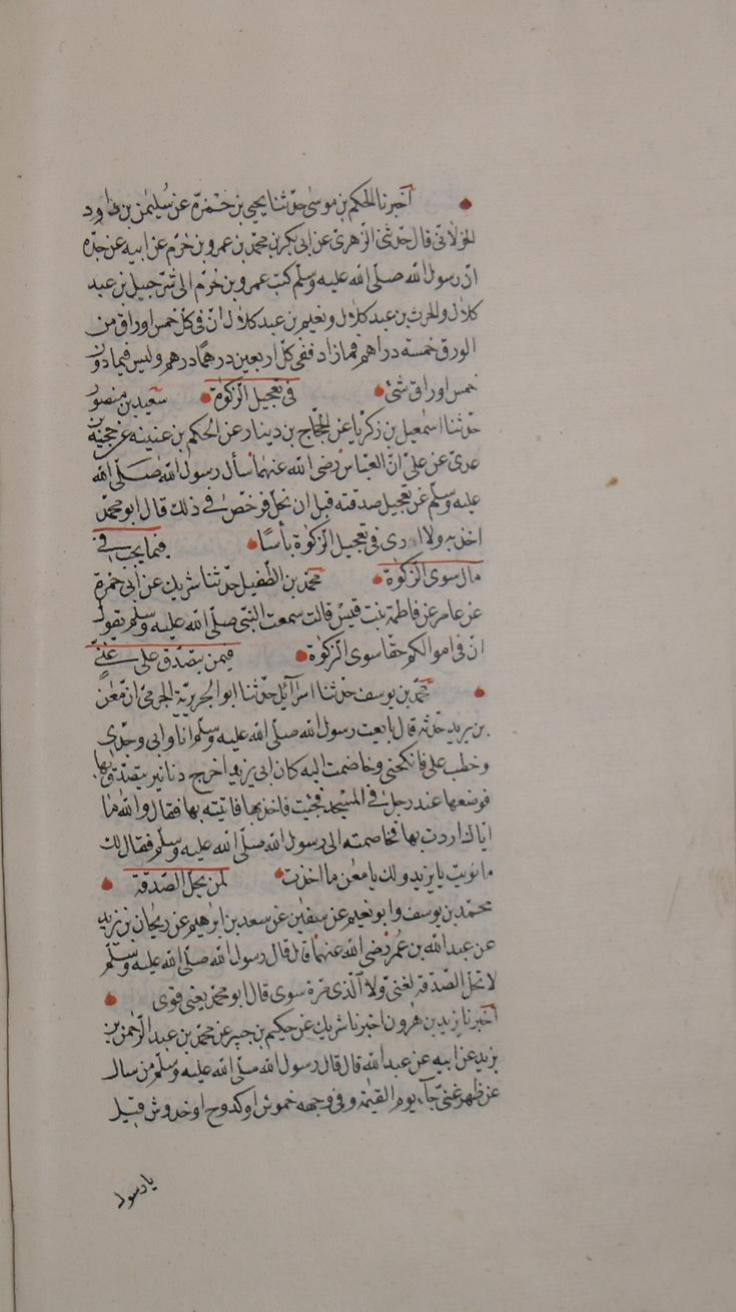 أخبرنا الحكم بن موسى حدثنا يحيى بن حمزة عن سليمن بن داود
الخولاني قال حدثني الزهري عن ابي بكر بن محمد بن عمرو بن حزم عن ابيه عن جده
ان رسول الله صلى الله عليه وسلم كتب عمرو بن حزم الى شرحبيل بن عبد
كلال والحرث بن عبد كلال ونعيم بن عبد كلال ان في كل خمس اوراق من
الورق خمسة دراهم فمازاد ففي كل اربعين درهمًا درهم وليس فيما دون
خمس اوراق شئ في تعجيل الزكوة سعيد بن منصور
حدثنا اسمعيل بن زكريا عن الحجاج بن دينار عن الحكم بن عتيبة عن حجية بن
عدي عن علي ان العباس رضى الله عنهما سأل رسول الله صلى الله
عليه وسلم عن تعجيل صدقته قبل ان تحل فرخص في ذلك قال ابو محمد
اخذ به ولا ارى في تعجيل الزكوة بأسًا فيما يجب في
مال سوى الزكوة محمد بن الطفيل حدثنا شريك عن ابي حمزة
عن عامر عن فاطمة بنت قيس قالت سمعت النبي صلى الله عليه وسلم يقول
ان في اموالكم حقا سوى الزكوة فيمن يتصدق على غني
محمد بن يوسف حدثنا اسرآئيل حدثنا ابو الجويرية الجرمي ان معن
بن يزيد حدثه قال بايعت رسول الله صلى الله عليه وسلم انا وابي وجدي
وخطب علي فانكحني وخاصمت اليه كان ابي يزيد اخرج دنانير يتصدق بها
فوضعها عند رجل في المسجد فجئت فاخذتها فاتيته بها فقال والله ما
اياك اردت بها فخاصمته الى رسول الله صلى الله عليه وسلم فقال لك
ما نويت يا يزيد ولك يا معن ما اخذت لمن يحل الصدقة
محمد بن يوسف وابو نعيم عن سفين عن سعد بن ابرهيم عن ريحان بن يزيد
عن عبد الله بن عمر رضى الله عنهما قال قال رسول الله صلى الله عليه وسلم
لا تحل الصدقة لغني ولا لذي مرة سوى قال ابو محمد يعني قوى
أخبرنا يزيد بن هرون اخبرنا شريك عن حكيم بن جبير عن محمد بن عبد الرحمن بن
يزيد عن ابيه عن عبد الله قال قال رسول الله صلى الله عليه وسلم من سال
عن ظهر غنى جآء يوم القيمة وفي وجهه خموش او كدوح او خدوش قيل
يا رسول